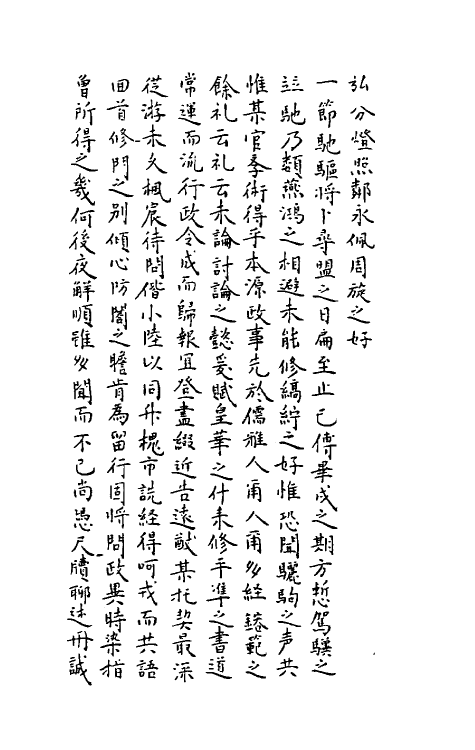 弘分燈照鄰永佩周旋之好
一節馳驅将卜尋盟之日扁至止已傳畢戍之期方慙駕驥之
竝馳乃類燕鴻之相避未能修縞紵之好惟恐聞驪駒之声共
惟某官學術得乎本源政事先於儒雅人甭人甭多経鎔範之
餘礼云礼云未論討論之懿爰賦皇華之什来修平準之書道
常運而流行政令成而歸報宜登畫綴近告遠猷某托契最深
從游未久楓宸待問偕小陸以同升槐市説経得呵戎而共語
回首修門之别傾心防閤之瞻肯為留行固将問政異時染指
曽所得之幾何後夜解順雖多聞而不已尚憑尺牘聊述丹誠